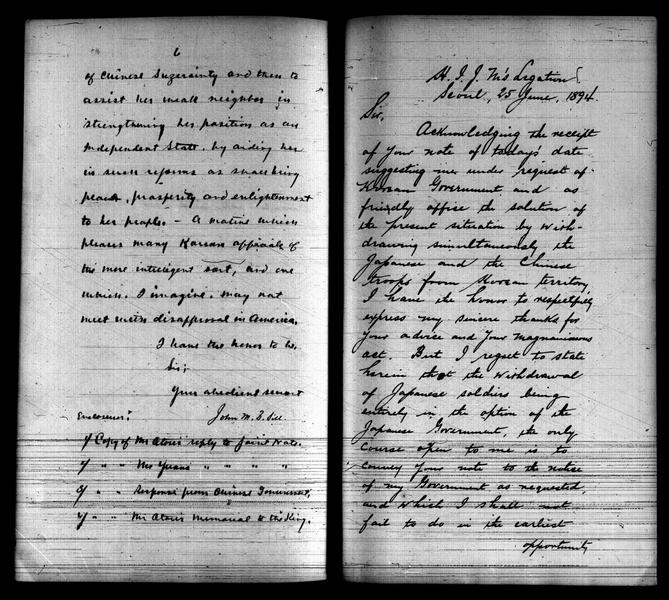 6
of Chinese Suzerainty and then to
assist her weak neighbor in
strengthening her position as an
Independent State, by aiding her
in such reforms as shall bring
peace, prosperity and enlightenment
to her people. - A motive which
pleases many Korean officials of
the more intelligent sort, and one
which, I imagine, may not
meet with disapproval in America.
I have the honor to be,
Sir,
Your obedient servant
John M. B. Sill.
Enclosures:
1/ Copy of Mr Otori's reply to Joint Note.
2/ " " Mr Yuan's " " " "
3/ " " Response from Chinese Government,
4/ " " Mr Otori's Memorial to the King.
H. I. J. M's Legation
Seoul, 25 June, 1894.
Sir,
Acknowledging the receipt
of your note of today's date
suggesting me under request of
Korean Government and as
friendly office the solution of
the present situation by with-
drawing simultaneously the
Japanese and the Chinese
troops from Korean territory,
I have the honor to respectfully
express my sincere thanks for
your advice and your magnanimous
act. But I regret to state
herein that the withdrawal
of Japanese soldiers being
entirely in the option of the
Japanese Government, the only
course open to me is to
convey your note to the notice
of my Government as requested,
and which I shall not
fail to do in the earliest
opportunity